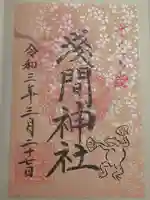 浅間神社
令和三年三月二十七日